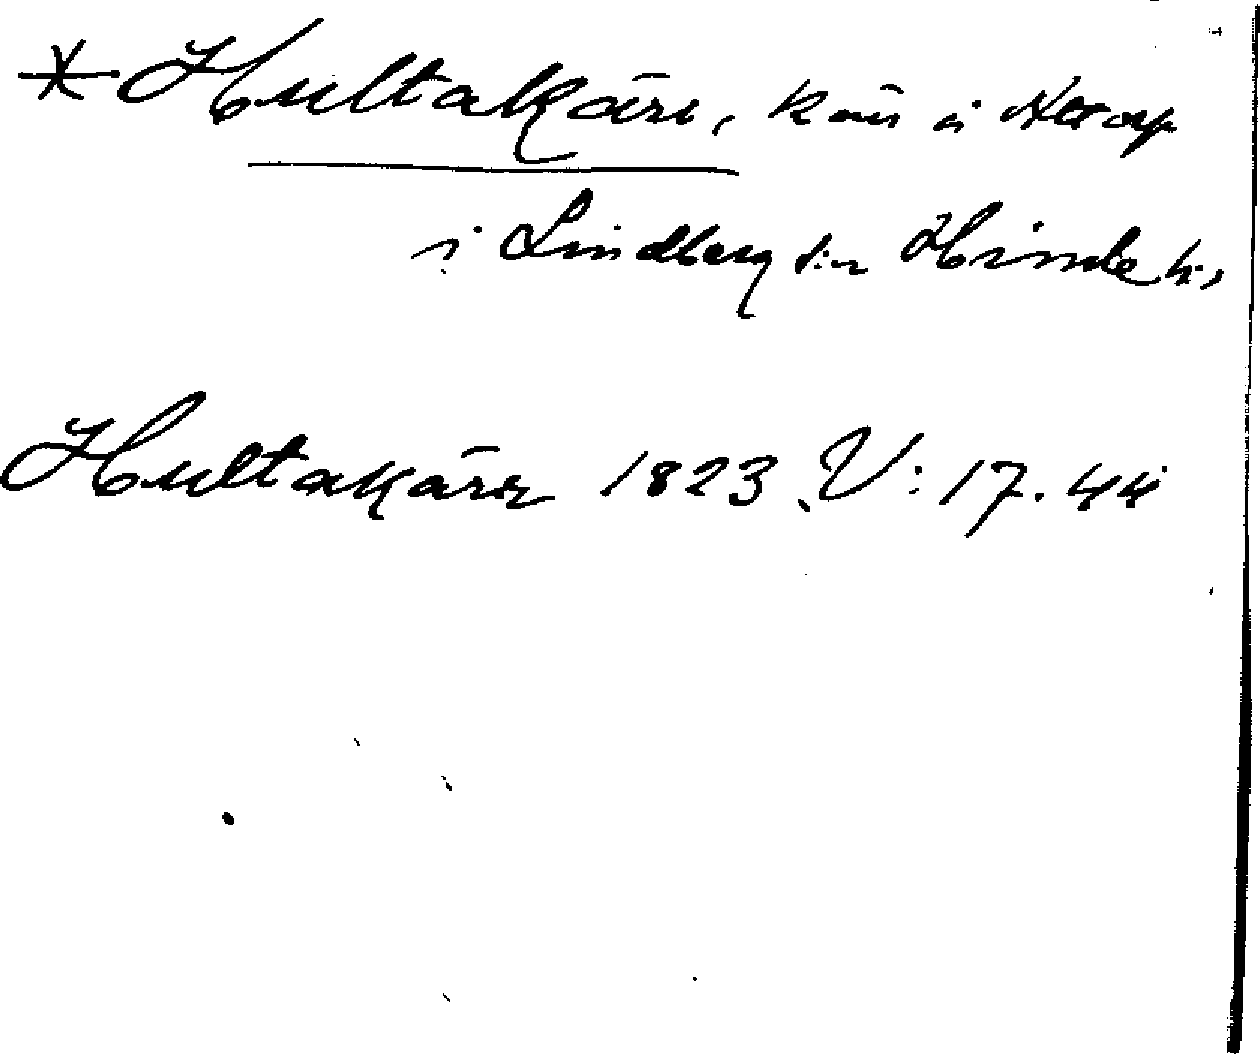 * Hultakärr, kärr å Attorp
i Lindberg s:n Himle h:d
Hultakärr 1823 V: 17. 44